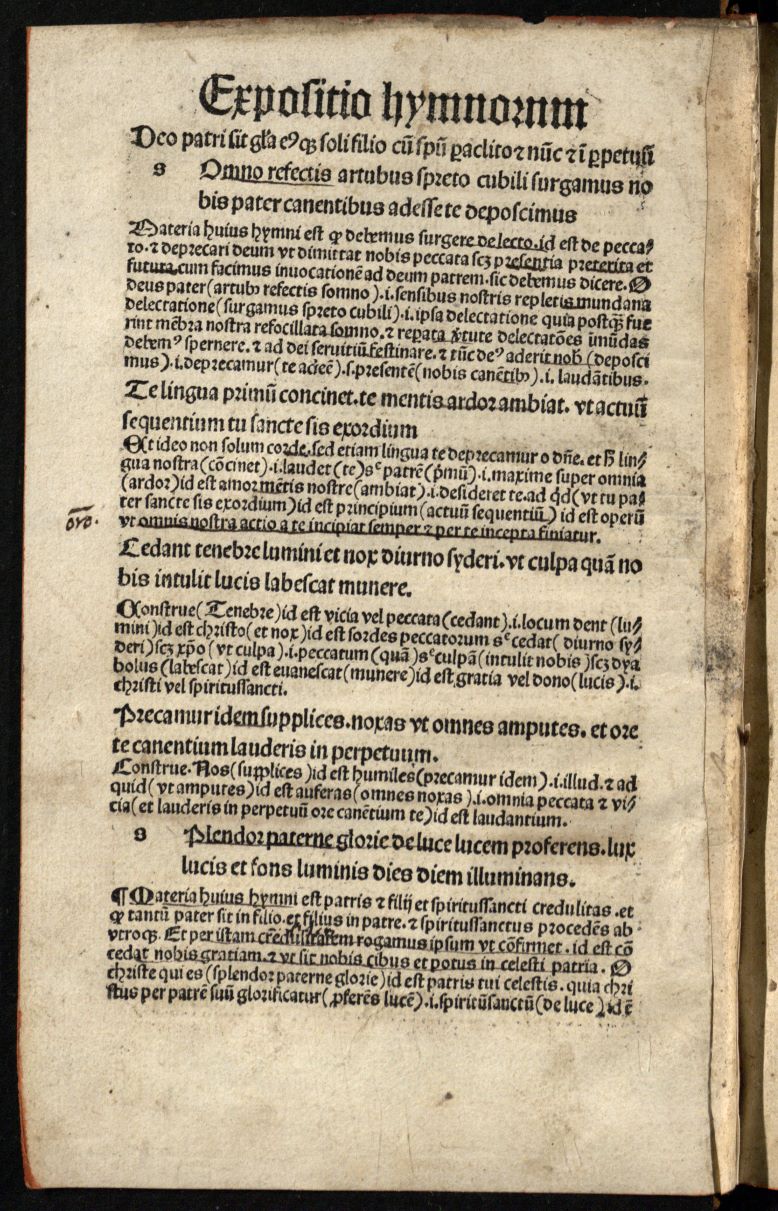 Expositio hymnorum
Deo patri sit gl̃a eꝰqꝫ soli filio cũ spũ ꝑaclito ⁊ nũc ⁊ ĩ ꝑpetuũ
s Omno refectis artubus spreto cubili surgamus no
bis pater canentibus adesse te deposcimus
Materia huius hymni est ꝙ debemus surgere de lecto. id est de pecca⸗
to. ⁊ deprecari deum vt dimittat nobis peccata scꝫ presentia preterita et
futura. cum facimus inuocationẽ ad deum patrem. sic debemus dicere. O
deus pater (artubꝫ refectis somno) .i. sensibus nostris repletis mundana
delectatione (surgamus spreto cubili) .i. ipsa delectatione quia postqꝫ fue
rint mẽbra nostra refocillata somno. ⁊ reꝑata ꝟtute delectatões imũdas
debemꝰ spernere. ⁊ ad dei seruitiũ festinare. ⁊ tũc deꝰ aderit nob̃ (deposci
mus) .i. deprecamur (te adeẽ) .s. presentẽ (nobis canẽtibꝫ) .i. laudãtibus.
Te lingua primũ concinet. te mentis ardor ambiat. vt actuũ
sequentium tu sancte sis exordium
Et ideo non solum corde. sed etiam lingua te deprecamur o dñe. et h̃ lin⸗
gua nostra (cõcinet) .i. laudet (te) sᶜ patrẽ (p̃mũ) .i. maxime super omnia
(ardor) id est amor mẽtis nostre (ambiat) .i. desideret te. ad q̃d (vt tu pa⸗
ter sancte sis exordium) id est principium (actuũ sequentiũ) id est operũ
oro.
vt omnis nostra actio a te incipiat semper ⁊ per te incepta finiatur.
Cedant tenebre lumini et nox diurno syderi. vt culpa quã no
bis intulit lucis labescat munere.
Construe (Tenebre) id est vicia vel peccata (cedant) .i. locum dent (lu⸗
mini) id est christo (et nox) id est sordes peccatorum sᶜ cedat (diurno sy⸗
deri) scꝫ xp̃o (vt culpa) .i. peccatum (quã) sᶜ culpã (intulit nobis) scꝫ dya
bolus (labescat) id est euanescat (munere) id est gratia vel dono (lucis) .i.
christi vel spiritussancti.
Precamur idem supplices. noxas vt omnes amputes. et ore
te canentium lauderis in perpetuum.
Construe. Nos (supplices) id est humiles (precamur idem) .i. illud. ⁊ ad
quid (vt amputes) id est auferas (omnes noxas) .i. omnia peccata ⁊ vi⸗
cia (et lauderis in perpetuũ ore canẽtium te) id est laudantium.
s Plendor paterne glorie de luce lucem proferens. lux
lucis et fons luminis dies diem illuminans.
¶ Materia huius hymni est patris ⁊ filij et spiritussancti credulitas. et
ꝙ tantũ pater sit in filio. ex filius in patre. ⁊ spiritussanctus procedẽs ab
vtroqꝫ. Et per istam crẽdulitatem rogamus ipsum vt cõfirmet. id est cõ
cedat nobis gratiam. ⁊ vt sit nobis cibus et potus in celesti patria. O
christe qui es (splendor paterne glorie) id est patris tui celestis. quia chri
stus per patrẽ suũ glorificatur (ꝓferẽs lucẽ) .i. spiritũsanctũ (de luce) id ẽ